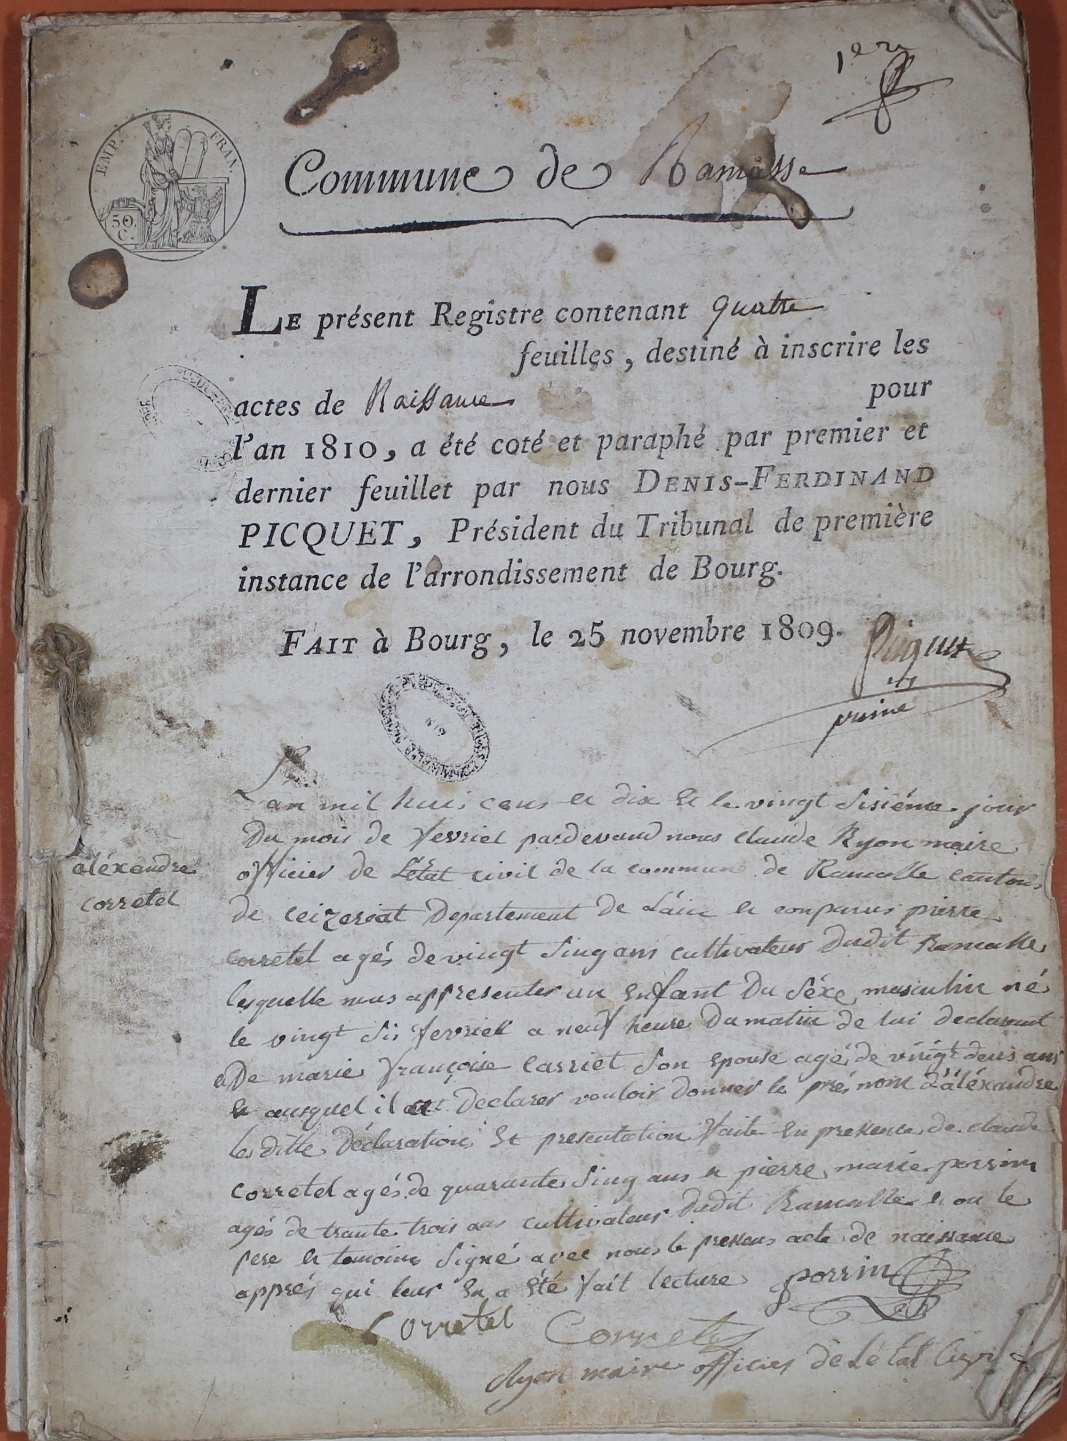 1er
EMP. FRAN.
50
C.
Commune de Ramasse
LE présent Registre contenant quatre
feuilles, destiné à inscrire les
actes de Naissance pour
l'an 1810, a été coté et paraphé par premier et
dernier feuillet par nous DENIS-FERDINAND
PICQUET, Président du Tribunal de première
instance de l'arrondissement de Bourg.
FAIT à Bourg, le 25 novembre 1809.
Picquet
alexandre
corretel
L'an mil huis cens et dix et le vingt sisiéme jour
Du mois de fevriel pardevand nous claude Ryon maire
officier de L'Etat civil de la commune de Ramasse canton
de ceizeriat Departement de L'ain et comparus pierre
corretel agés de vingt sinq ans cultivateur Dudit Ramasse
lesquelle nous appresenter un enfant Du séxe masculin né
le vingt sis fevriel a neuf heure Du matin de lui declarant
et De marie françoise carriet son epouse agé de vingt deus ans
et ausquel il a declarer vouloir donner le prénom D'aléxandre
les ditte Déclaration Et presentation faite En presence de claude
corretel agés de quarante sinq ans et pierre marie perrin
agés de trante trois ans cultivateur Dudit Ramasse et on le
pere et temoins signé avec nous le presens acte de naissance
apprés qui leur En a Eté fait lecture perrin
Corretel Corretel
Ryon maire officier de L'état Civil